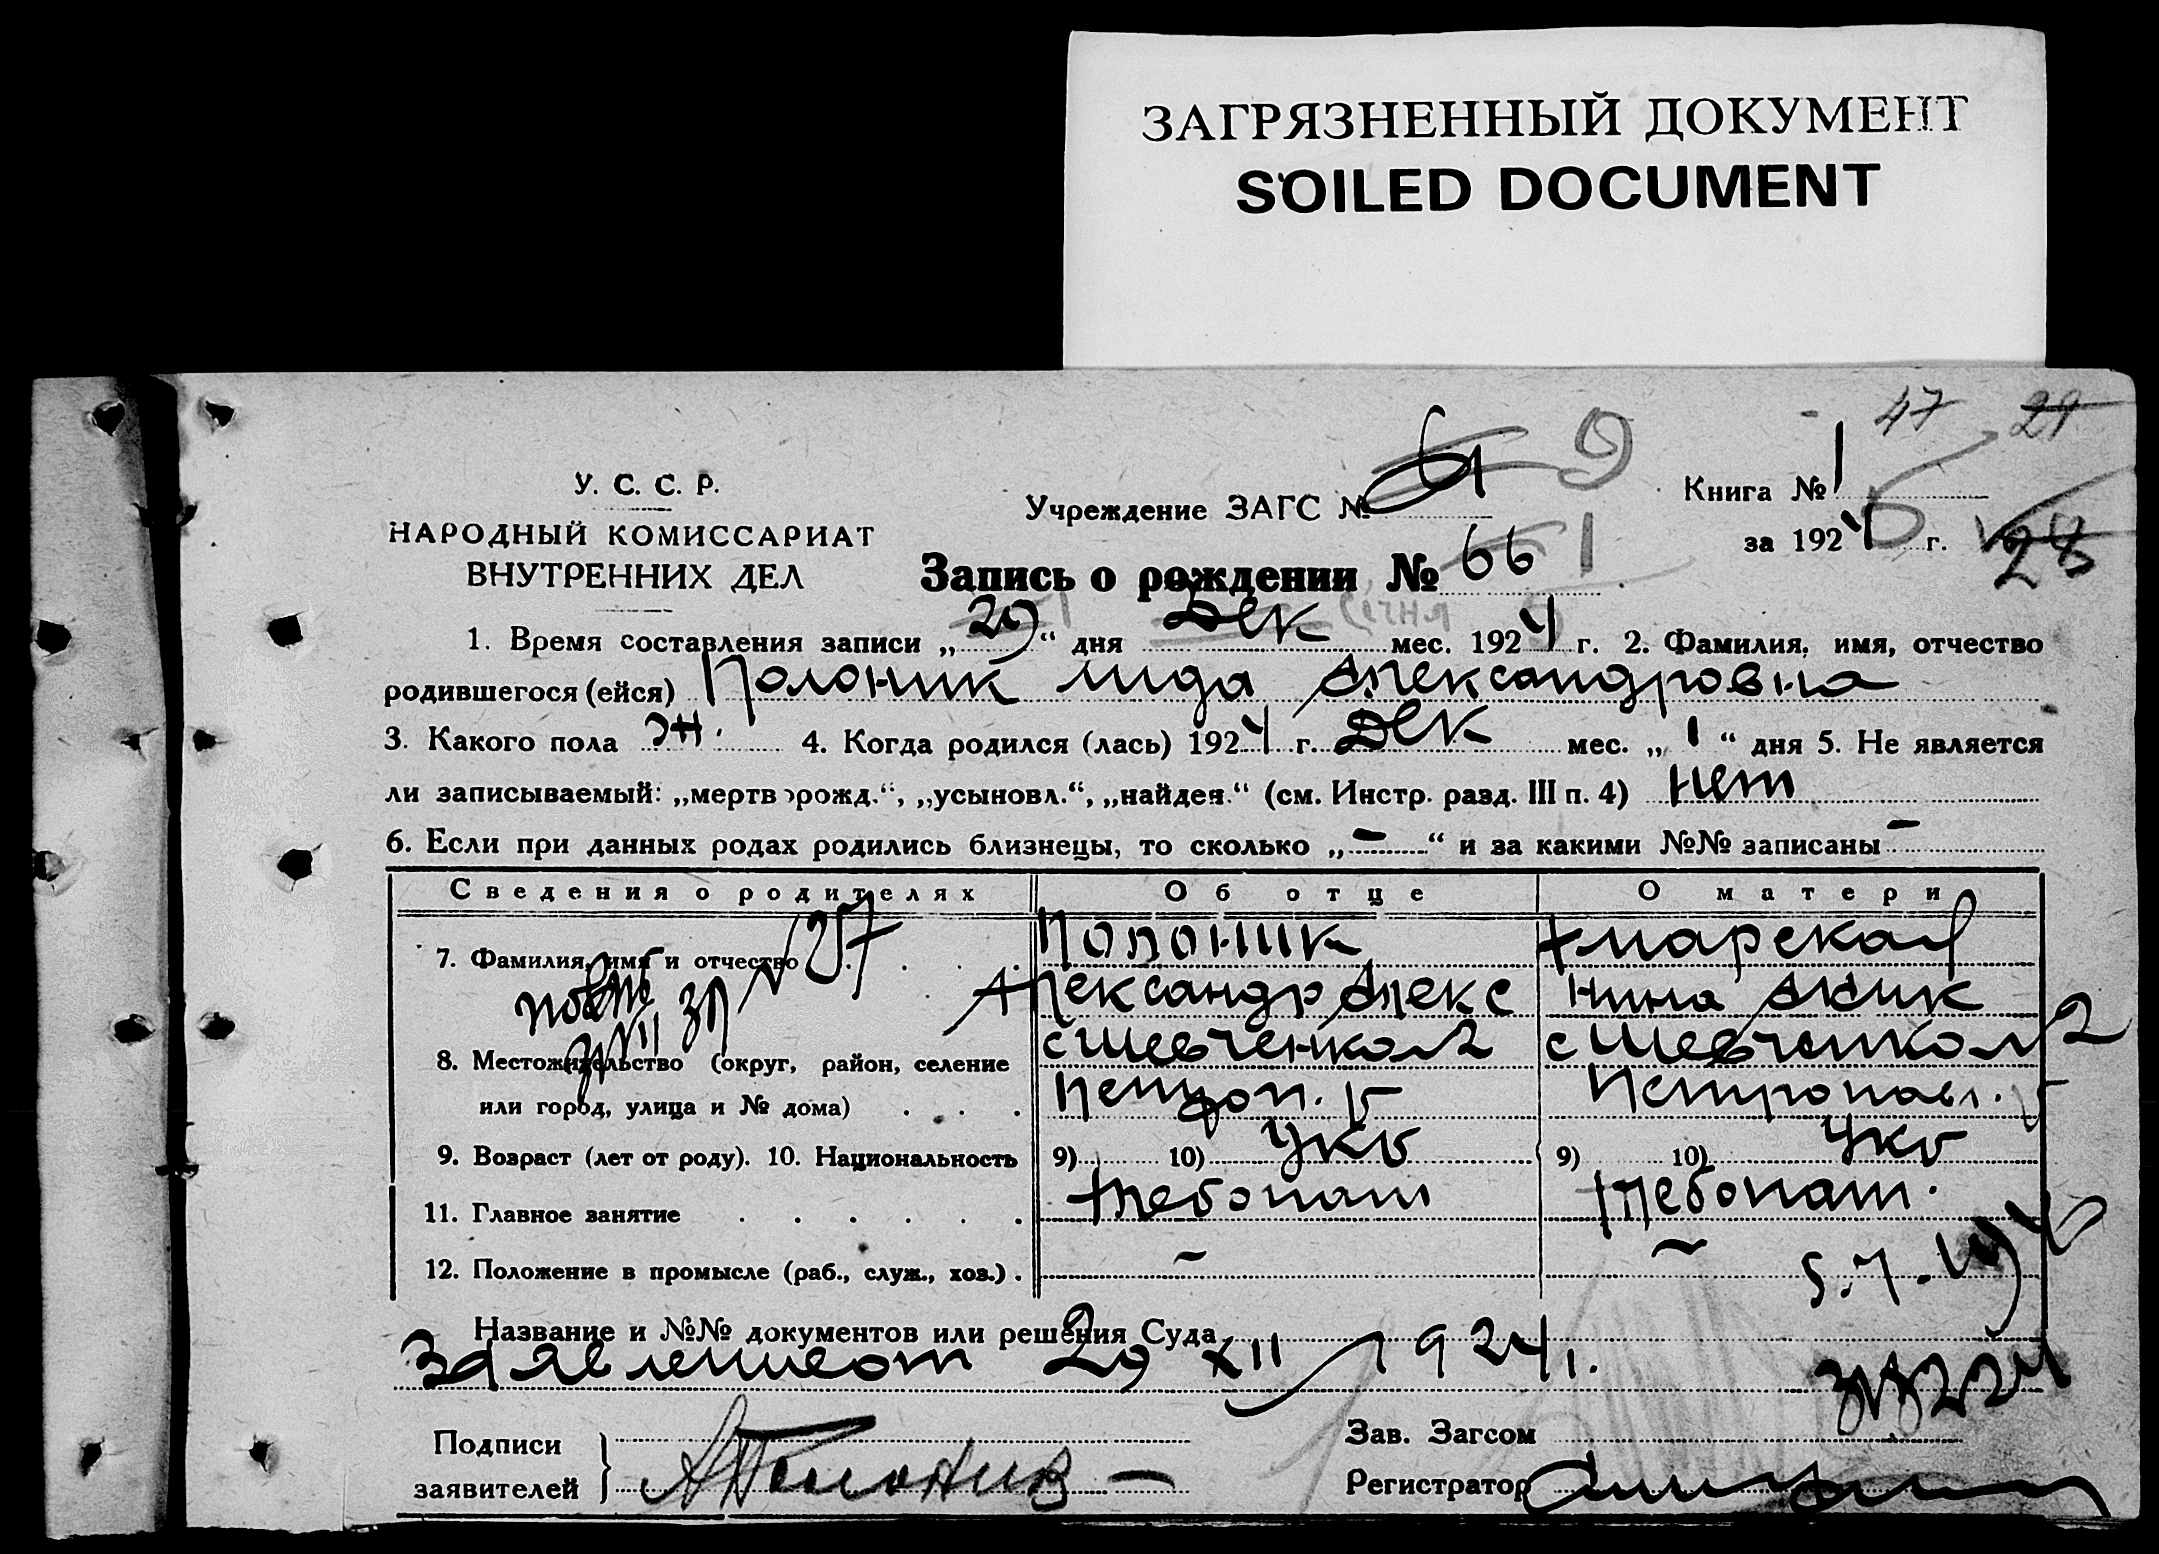 ЗАГРЯЗНЕННЫЙ ДОКУМЕНТ
SOILED DOCUMENT
47 29
У. С. С. Р.
НАРОДНЫЙ КОМИССАРИАТ
ВНУТРЕННИХ ДЕЛ
Учреждение ЗАГС № 9
Книга № 1
за 1924 г.
28
Запись о рождении № 66 1
1. Время составления записи „29“ дня Дек мес. 1924 г. 2. Фамилия, имя, отчество
родившегося (ейся) Полоник Лида Александровна
3. Какого пола ж. 4. Когда родился (лась) 1924 г. Дек мес. „1“ дня 5. Не является
ли записываемый: „мертворожд.“, „усыновл.“, „найден.“ (см. Инстр. разд. III п. 4) нет
6. Если при данных родах родились близнецы, то сколько „-“ и за какими №№ записаны -
Сведения о родителях Об отце О матери
7. Фамилия, имя и отчество Полоник Хмарская
Александр Алекс Нина
8. Местожительство (округ, район, селение с Шевченко с Шевченко
или город, улица и № дома) Петроп. Петропавл.
9. Возраст (лет от роду). 10. Национальность 9) 10) Укр 9) 10) Укр
11. Главное занятие Хлебопаш Хлебопаш.
12. Положение в промысле (раб., служ., хоз.) - -
Название и №№ документов или решения Суда
Заявление от 29 XII 1924 г.
Подписи
заявителей АПолоник
Зав. Загсом
Регистратор